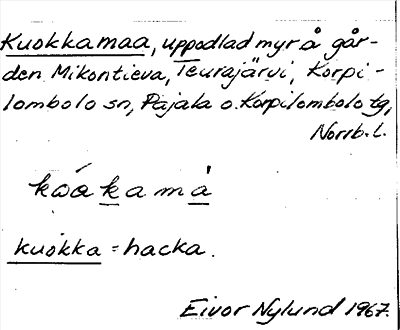 Kuokkamaa, uppodlad myr å går-
den Mikontieva, Teurajärvi, Korpi-
lombolo sn, Pajala o. Korpilombolo tg,
Norrb. l.
kuokka = hacka.
Eivor Nylund 1967.